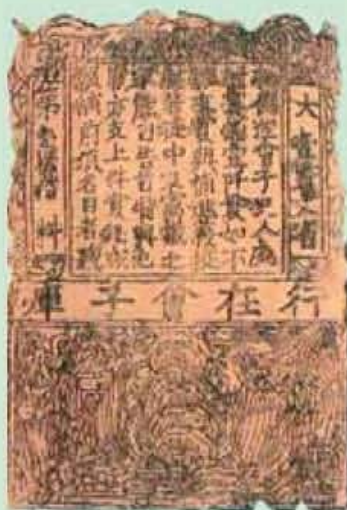 大壹貫文省
偽造會子犯人處
賞錢壹阡貫如不
支賞與補進義校
徒中及窩藏之
能自告首特與免
亦支上件賞錢或
願補前項名目者聽
第壹百拾料
行在會子庫